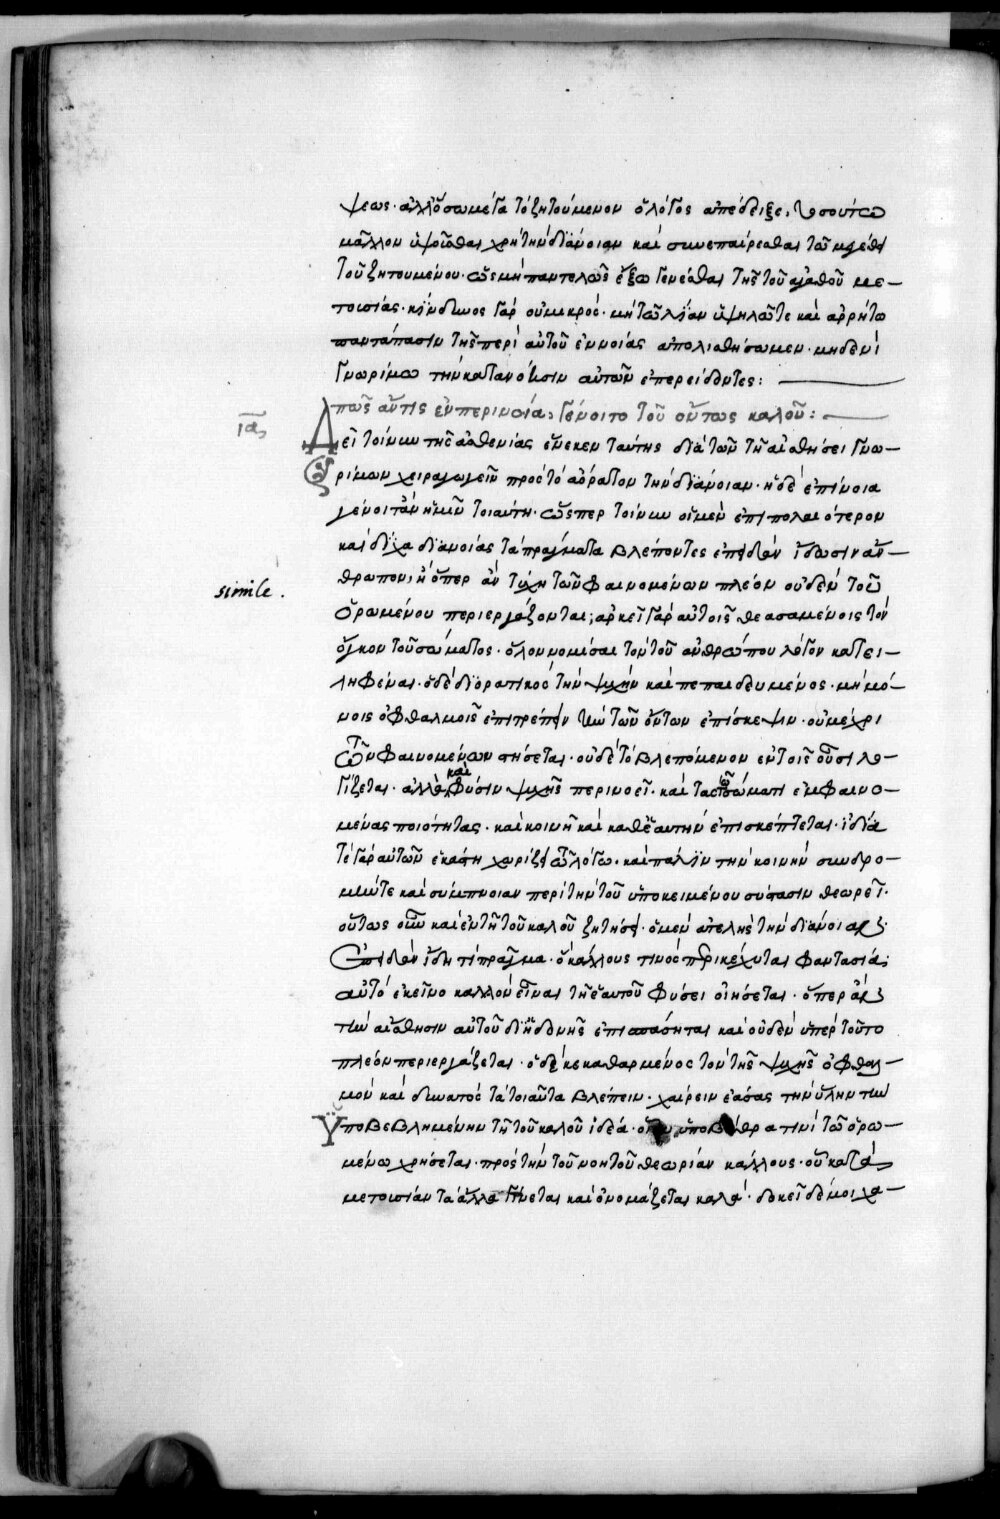 ψεως· ἀλλ' ὅσω μέγα τὸ ζητούμενον ὁ λόγος ἀπέδειξε, τοσούτω
μᾶλλον ὑψοῦσθαι χρὴ τὴν διάνοιαν καὶ συνεπαίρεσθαι τῶ μεγέθει
τοῦ ζητουμένου· ὡς μὴ παντελῶς ἔξω γενέσθαι τῆς τοῦ ἀγαθοῦ με–
τουσίας· κίνδυνος γὰρ οὐ μικρός· μὴ τῶ λίαν ὑψηλῶ τε καὶ ἀρρήτω
παντάπασιν τῆς περὶ αὐτοῦ ἐννοίας ἀπολισθήσωμεν· μηδενὶ
γνωρίμω τὴν κατανόησιν αὐτῶν ἐπερείδοντες:
ια πῶς ἄν τις ἐν περινοία, γένοιτο τοῦ ὄντως καλοῦ:
Δεῖ τοίνυν τῆς ἀσθενίας ἕνεκεν ταύτης διὰ τῶν τῆ αἰσθήσει γνω–
ρίμων χειραγωγεῖν πρὸς τὸ ἀόρατον τὴν διάνοιαν· ἡ δὲ ἐπίνοια
γένοιτ' ἂν ἡμῖν τοιαύτη· ὥσπερ τοίνυν οἱ μὲν ἐπιπολαιότερον
καὶ δίχα διανοίας τὰ πράγματα βλέποντες ἐπειδὰν ἴδωσιν ἄν–
θρωπον, ἢ ὅπερ ἂν τύχη τῶν φαινομένων πλέον οὐδὲν τοῦ
simile.
ὁρωμένου περιεργάζονται; ἀρκεῖ γὰρ αὐτοῖς θεασαμένοις τὸν
ὄγκον τοῦ σώματος· ὅλον νομίσαι τὸν τοῦ ἀνθρώπου λόγον κατει–
ληφέναι· ὁ δὲ διορατικὸς τὴν ψυχὴν καὶ πεπαιδευμένος· μὴ μό–
νοις ὀφθαλμοῖς ἐπιτρέπειν τὴν τῶν ὄντων ἐπίσκεψιν· οὐ μέχρι
τῶν φαινομένων στήσεται· οὐδὲ τὸ βλεπόμενον ἐν τοῖς οὖσι λο–
γίζεται· ἀλλὰ καὶ φύσιν ψυχῆς περινοεῖ· καὶ τὰς τῶ σώματι ἐμφαινο–
μένας ποιότητας· καὶ κοινῆ καὶ καθ' ἑαυτὴν ἐπισκέπτεται· ἰδία
τε γὰρ αὐτῶν ἑκάστη χωρίζει τῶ λόγω· καὶ πάλιν τὴν κοινὴν συνδρο–
μήν τε καὶ σύμπνοιαν περὶ τὴν τοῦ ὑποκειμένου σύστασιν θεωρεῖ·
οὕτως οὖν καὶ ἐν τῆ τοῦ καλοῦ ζητήσει· ὁ μὲν ἀτελὴς τὴν διάνοιαν·
ἐπειδὰν ἴδη τὶ πρᾶγμα· ὃ κάλλους τινὸς περικέχυται φαντασία·
αὐτὸ ἐκεῖνο καλλὸν εἶναι τῆ ἑαυτοῦ φύσει οἰήσεται· ὅπερ ἂν
τὴν αἴσθησιν αὐτοῦ δι' ἡδονῆς ἐπισπάσηται καὶ οὐδὲν ὑπὲρ τοῦτο
πλέον περιεργάζεται· ὁ δὲ κεκαθαρμένος τὸν τῆς ψυχῆς ὀφθαλ–
μὸν καὶ δυνατὸς τὰ τοιαῦτα βλέπειν· χαίρειν ἐάσας τὴν ὕλην τὴν
ὑποβεβλημένην τῆ τοῦ καλοῦ ἰδέα· ὑποβάθρα τινὶ τῶ ὁρω–
μένω χρήσεται· πρὸς τὴν τοῦ νοητοῦ θεωρίαν κάλλους· οὗ κατὰ
μετουσίαν τὰ ἄλλα γίνεται καὶ ὀνομάζεται καλά· δοκεῖ δέ μοι χα–